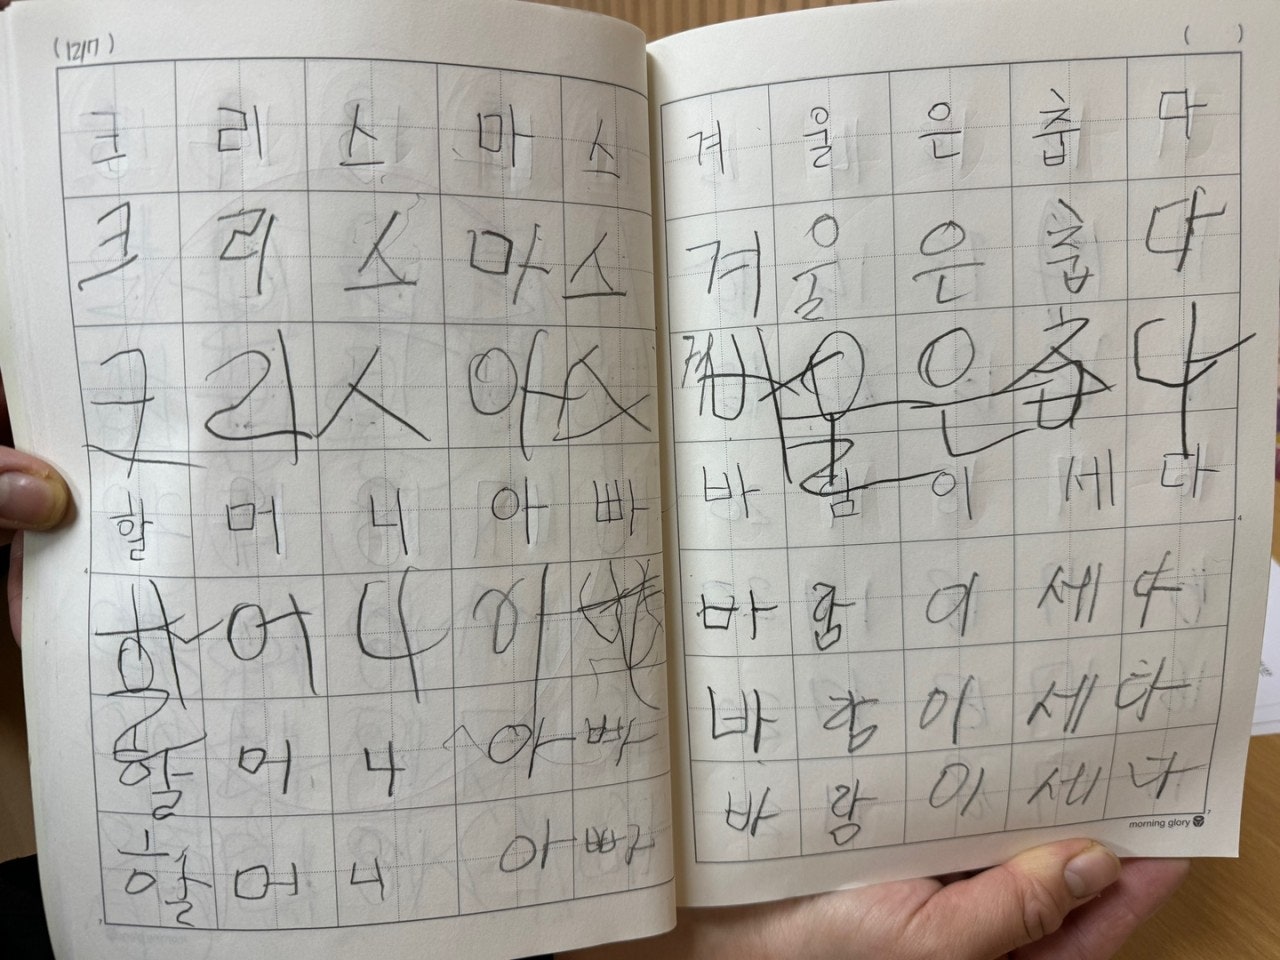 (12/7)
크 리 스 마 스
크 리 스 마 스
크 리 스 아 스
할 머 니 아 빠
어 니 아
할 머 니 아 빠
할 머 니 아 빠
( )
겨 울 은 춥 다
겨 울 은 춥 다
겨 울 은 춥 다
바 람 이 세 다
바 람 이 세 다
바 람 이 세 다
바 람 이 세 다
morning glory